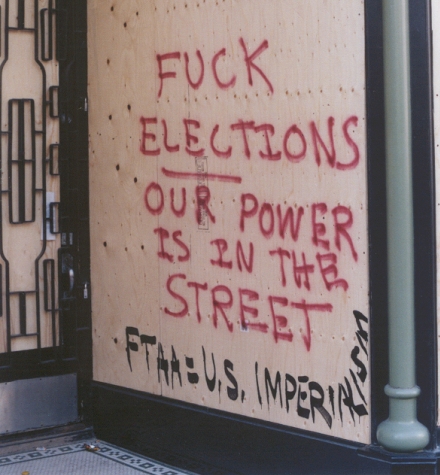 FUCK
ELECTIONS
OUR POWER
IS IN THE
STREET
FTAA=U.S. IMPERIALISM